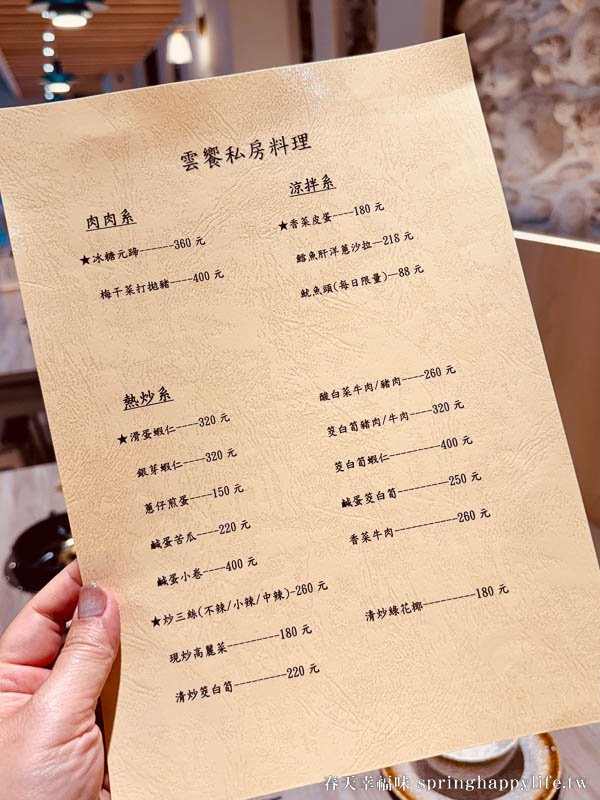 雲饗私房料理
肉肉系
★冰糖元蹄-------360 元
梅干菜打拋豬----400 元
涼拌系
★香菜皮蛋----180 元
鱈魚肝洋蔥沙拉--218 元
魷魚頭(每日限量)--88 元
熱炒系
★滑蛋蝦仁-----320 元
銀芽蝦仁-----320 元
蔥仔煎蛋-----150 元
鹹蛋苦瓜-----220 元
鹹蛋小卷----400 元
★炒三絲(不辣/小辣/中辣)-260 元
現炒高麗菜----------180 元
清炒筊白筍----------220 元
酸白菜牛肉/豬肉-----260 元
筊白筍豬肉/牛肉----320 元
筊白筍蝦仁----------400 元
鹹蛋筊白筍----------250 元
香菜牛肉------------260 元
清炒綠花椰----------180 元
春天幸福味 springhappylife.tw